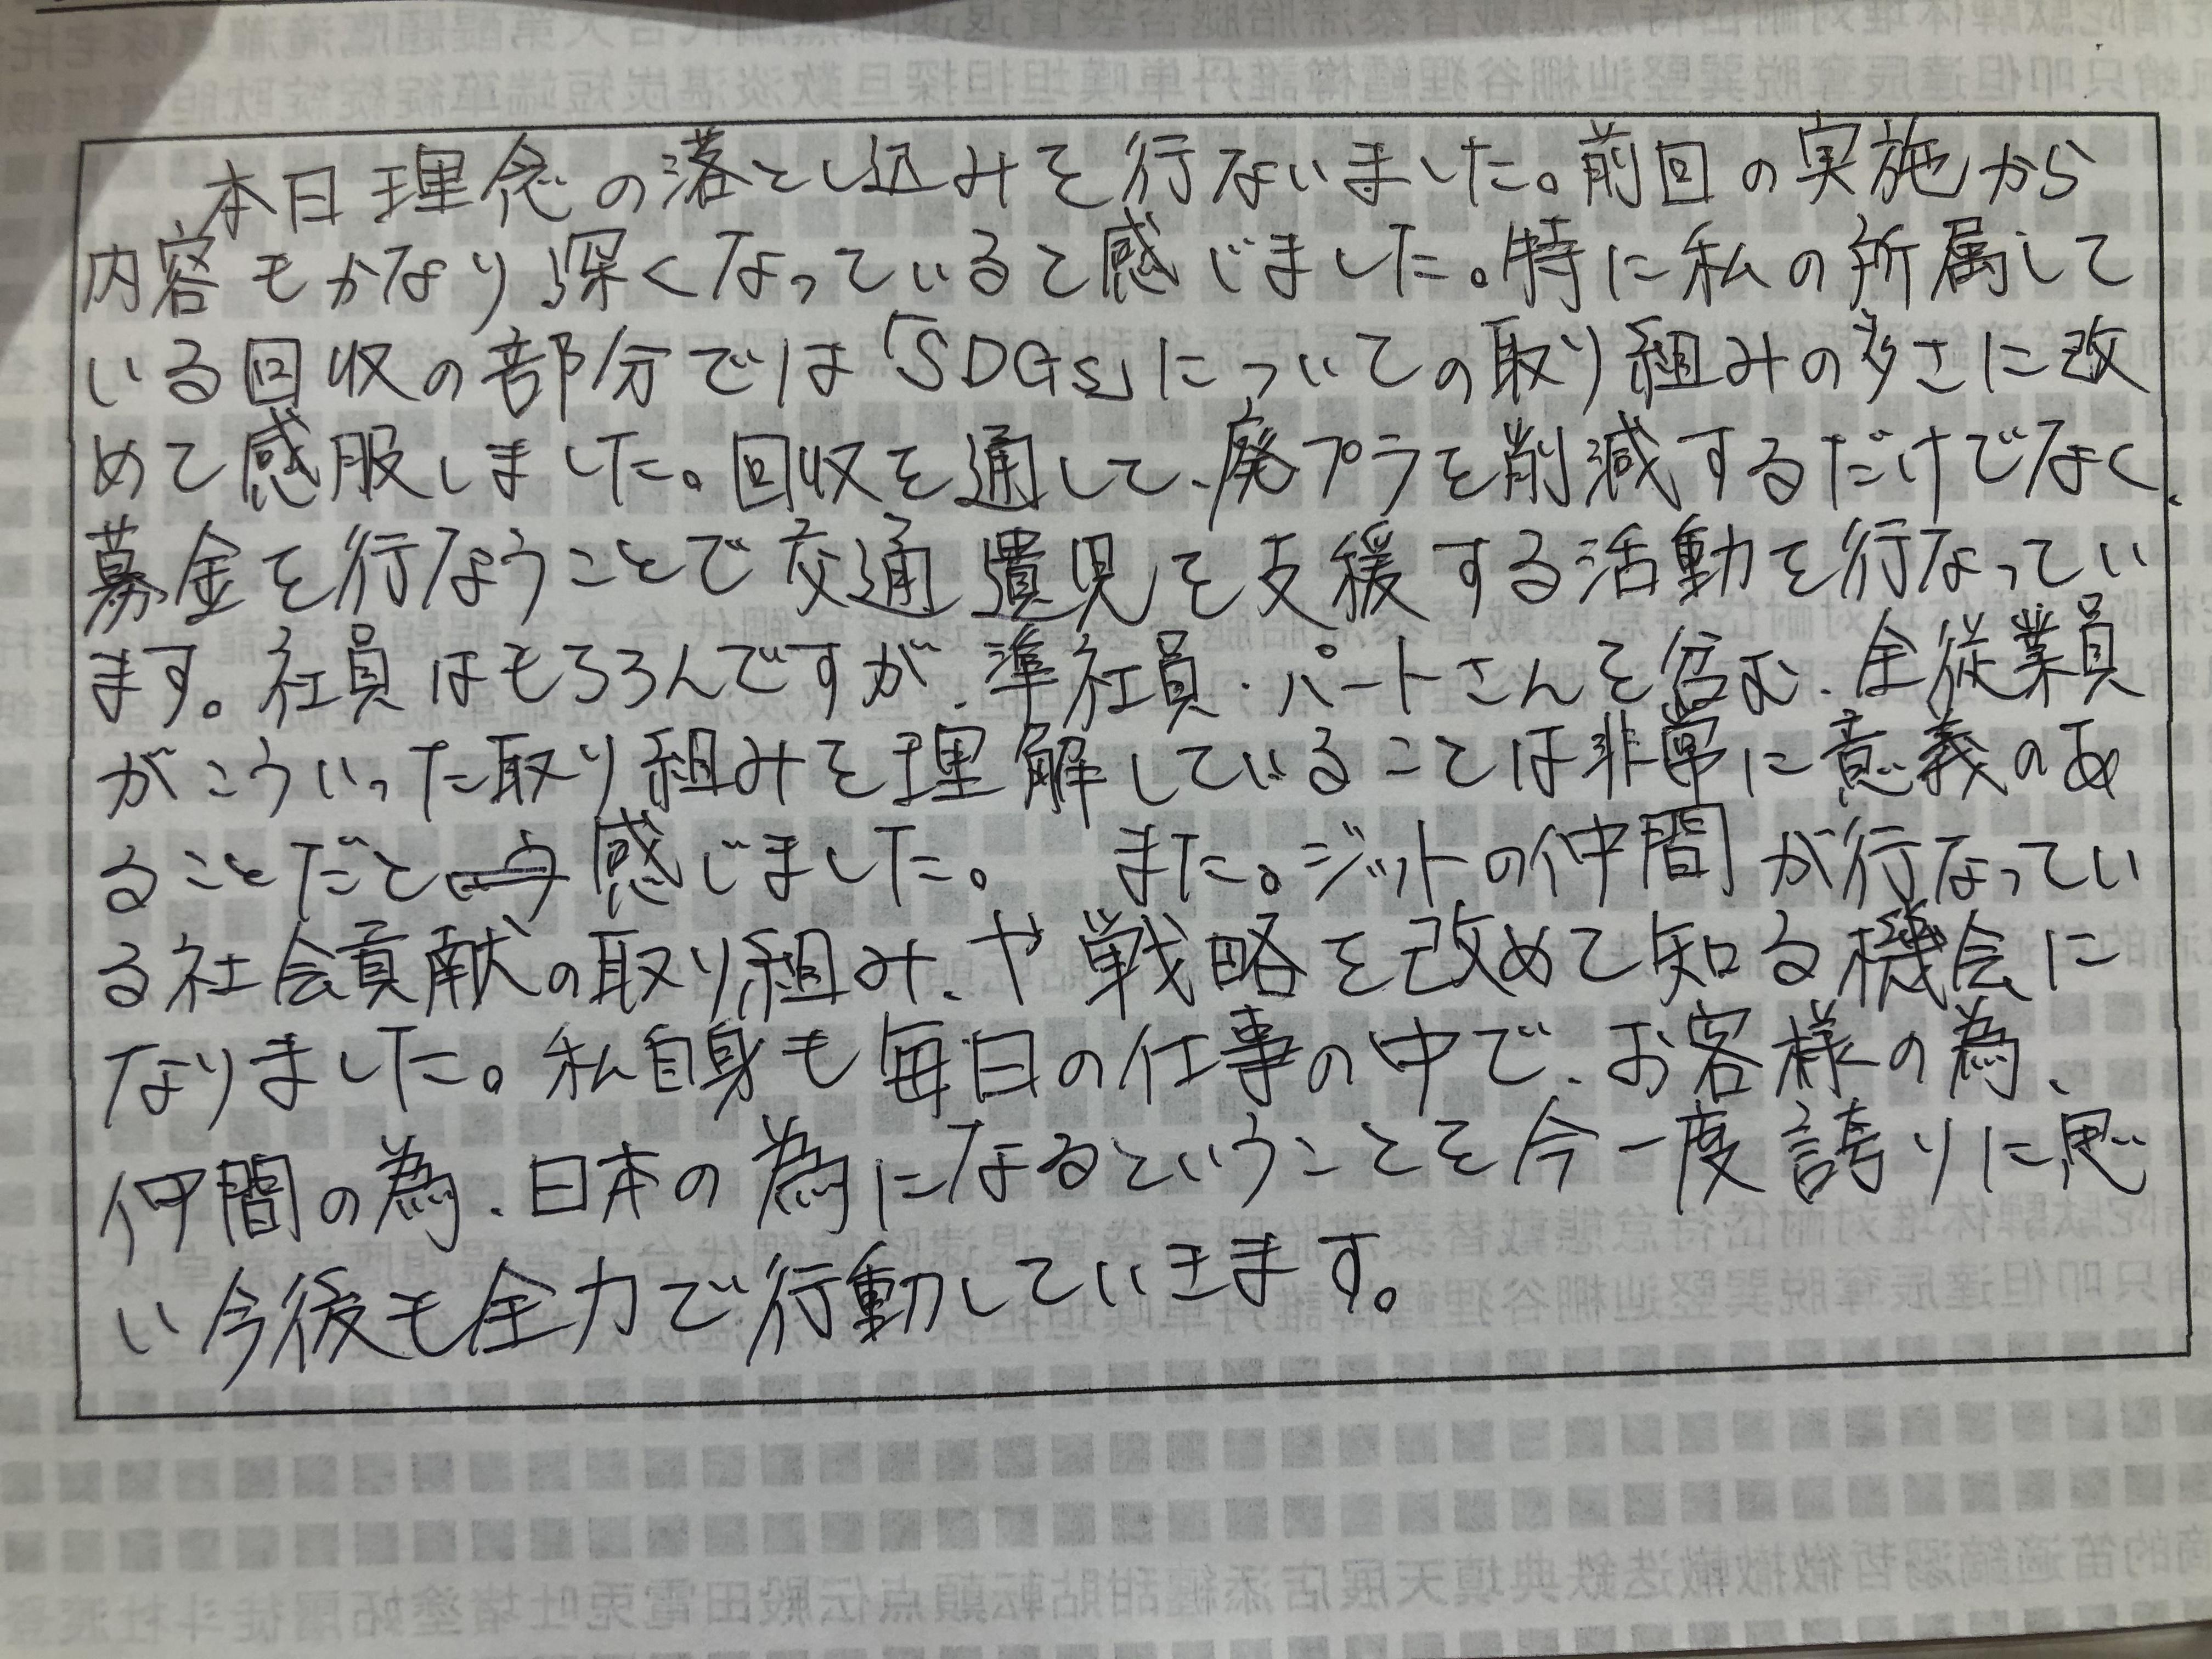 本日理念の落とし込みを行ないました。前回の実施から
内容もかなり深くなっていると感じました。特に私の所属して
いる回収の部分では「SDGs」についての取り組みの多さに改
めて感服しました。回収を通して、廃プラを削減するだけでなく、
募金を行なうことで交通遺児を支援する活動を行なってい
ます。社員はもちろんですが、準社員・パートさんを含む、全従業員
がこういった取り組みを理解していることは非常に意義のあ
ることだと感じました。 また。ジットの仲間が行なってい
る社会貢献の取り組み、や戦略を改めて知る機会に
なりました。私自身も毎日の仕事の中で、お客様の為、
仲間の為、日本の為になるということを今一度誇りに思
い今後も全力で行動していきます。